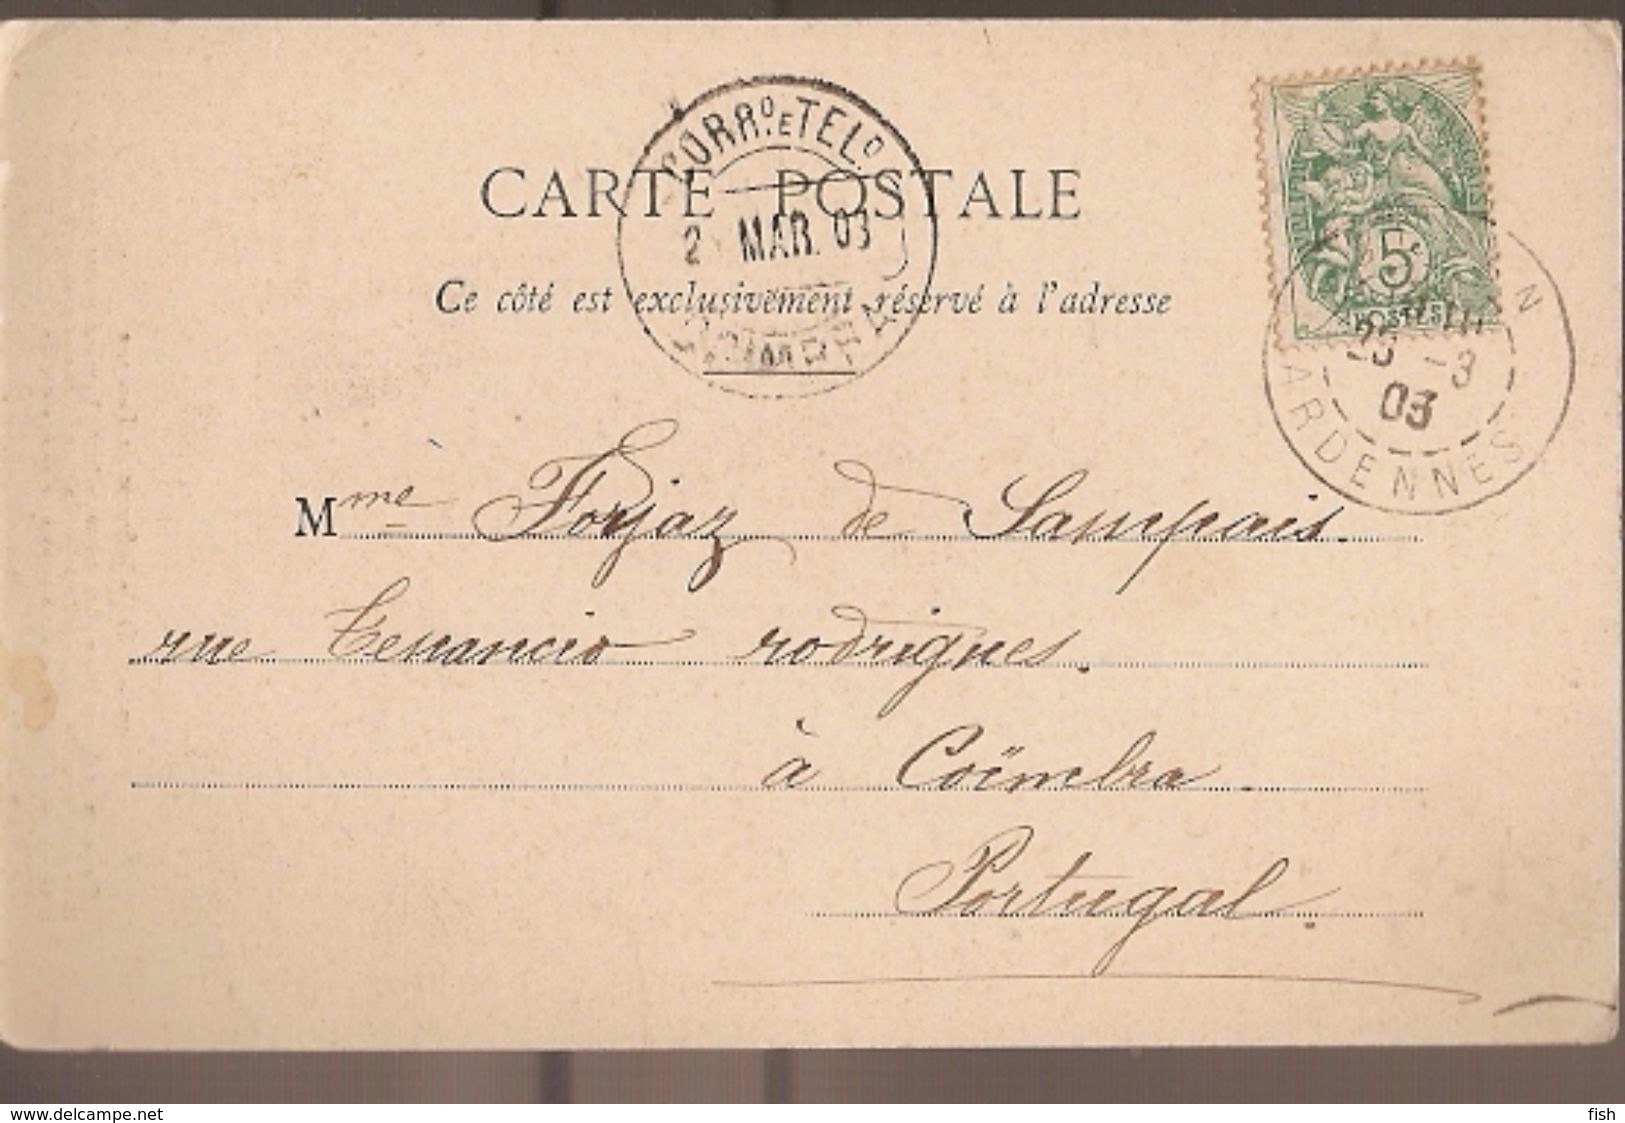 CORRO. E TELO.
CARTE POSTALE
2 MAR. 03
Ce côté est exclusivement réservé à l'adresse
COIMBRA
5c
POSTES
-3
03
ARDENNES
Mme Forjaz de Sampais.
rue Tenancio rodrigues.
à Coïmbra.
Portugal.
www.delcampe.net
fish